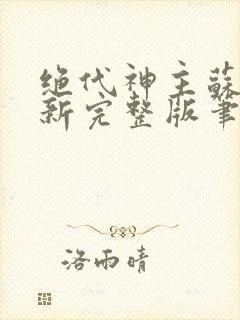 绝代神主蘇
新完整版筆
洛雨晴